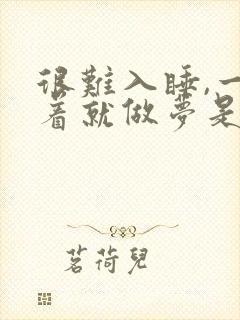 很難入睡,一
着就做夢是
茗荷兒